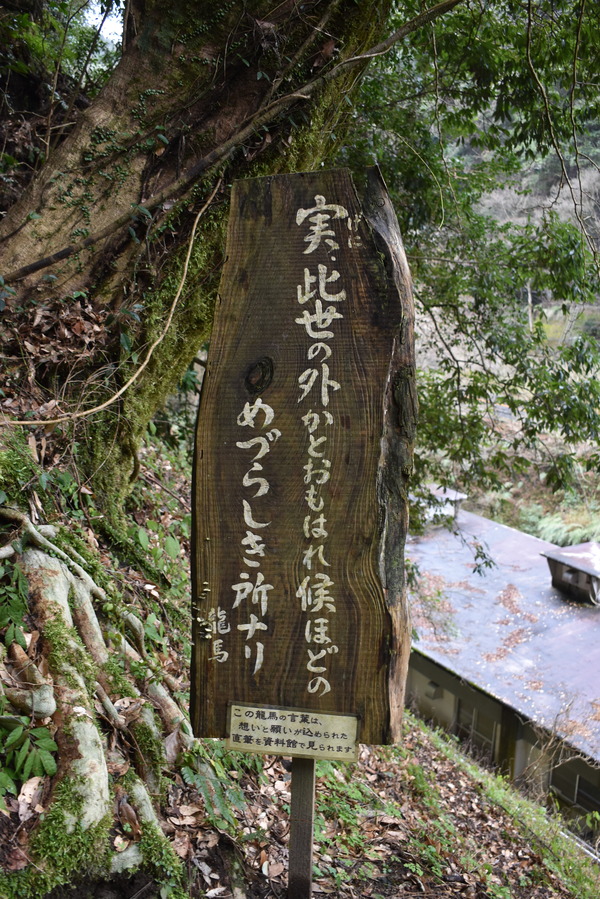 実、此世の外かとおもはれ候ほどの
げに
めづらしき所ナリ
龍馬
この龍馬の言葉は、
想いと願いが込められた
直筆を資料館で見られます。